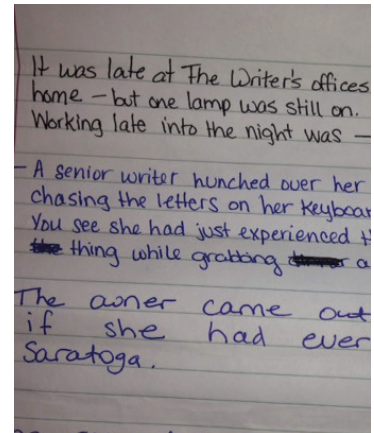 It was late at The Writer's offices
home – but one lamp was still on.
Working late into the night was —
– A senior writer hunched over her
chasing the letters on her keyboar
You see she had just experienced t
thing while grabbing a
The aoner came out
if she had ever
Saratoga.